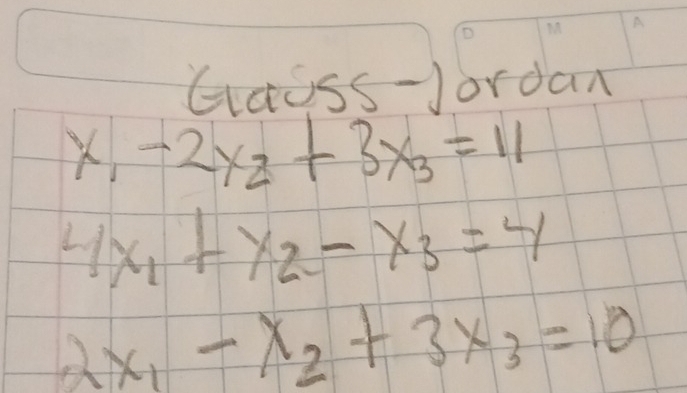 D M A
Gauss-Jordan
x₁ - 2x₂ + 3x₃ = 11
4x₁ + x₂ - x₃ = 4
2x₁ - x₂ + 3x₃ = 10